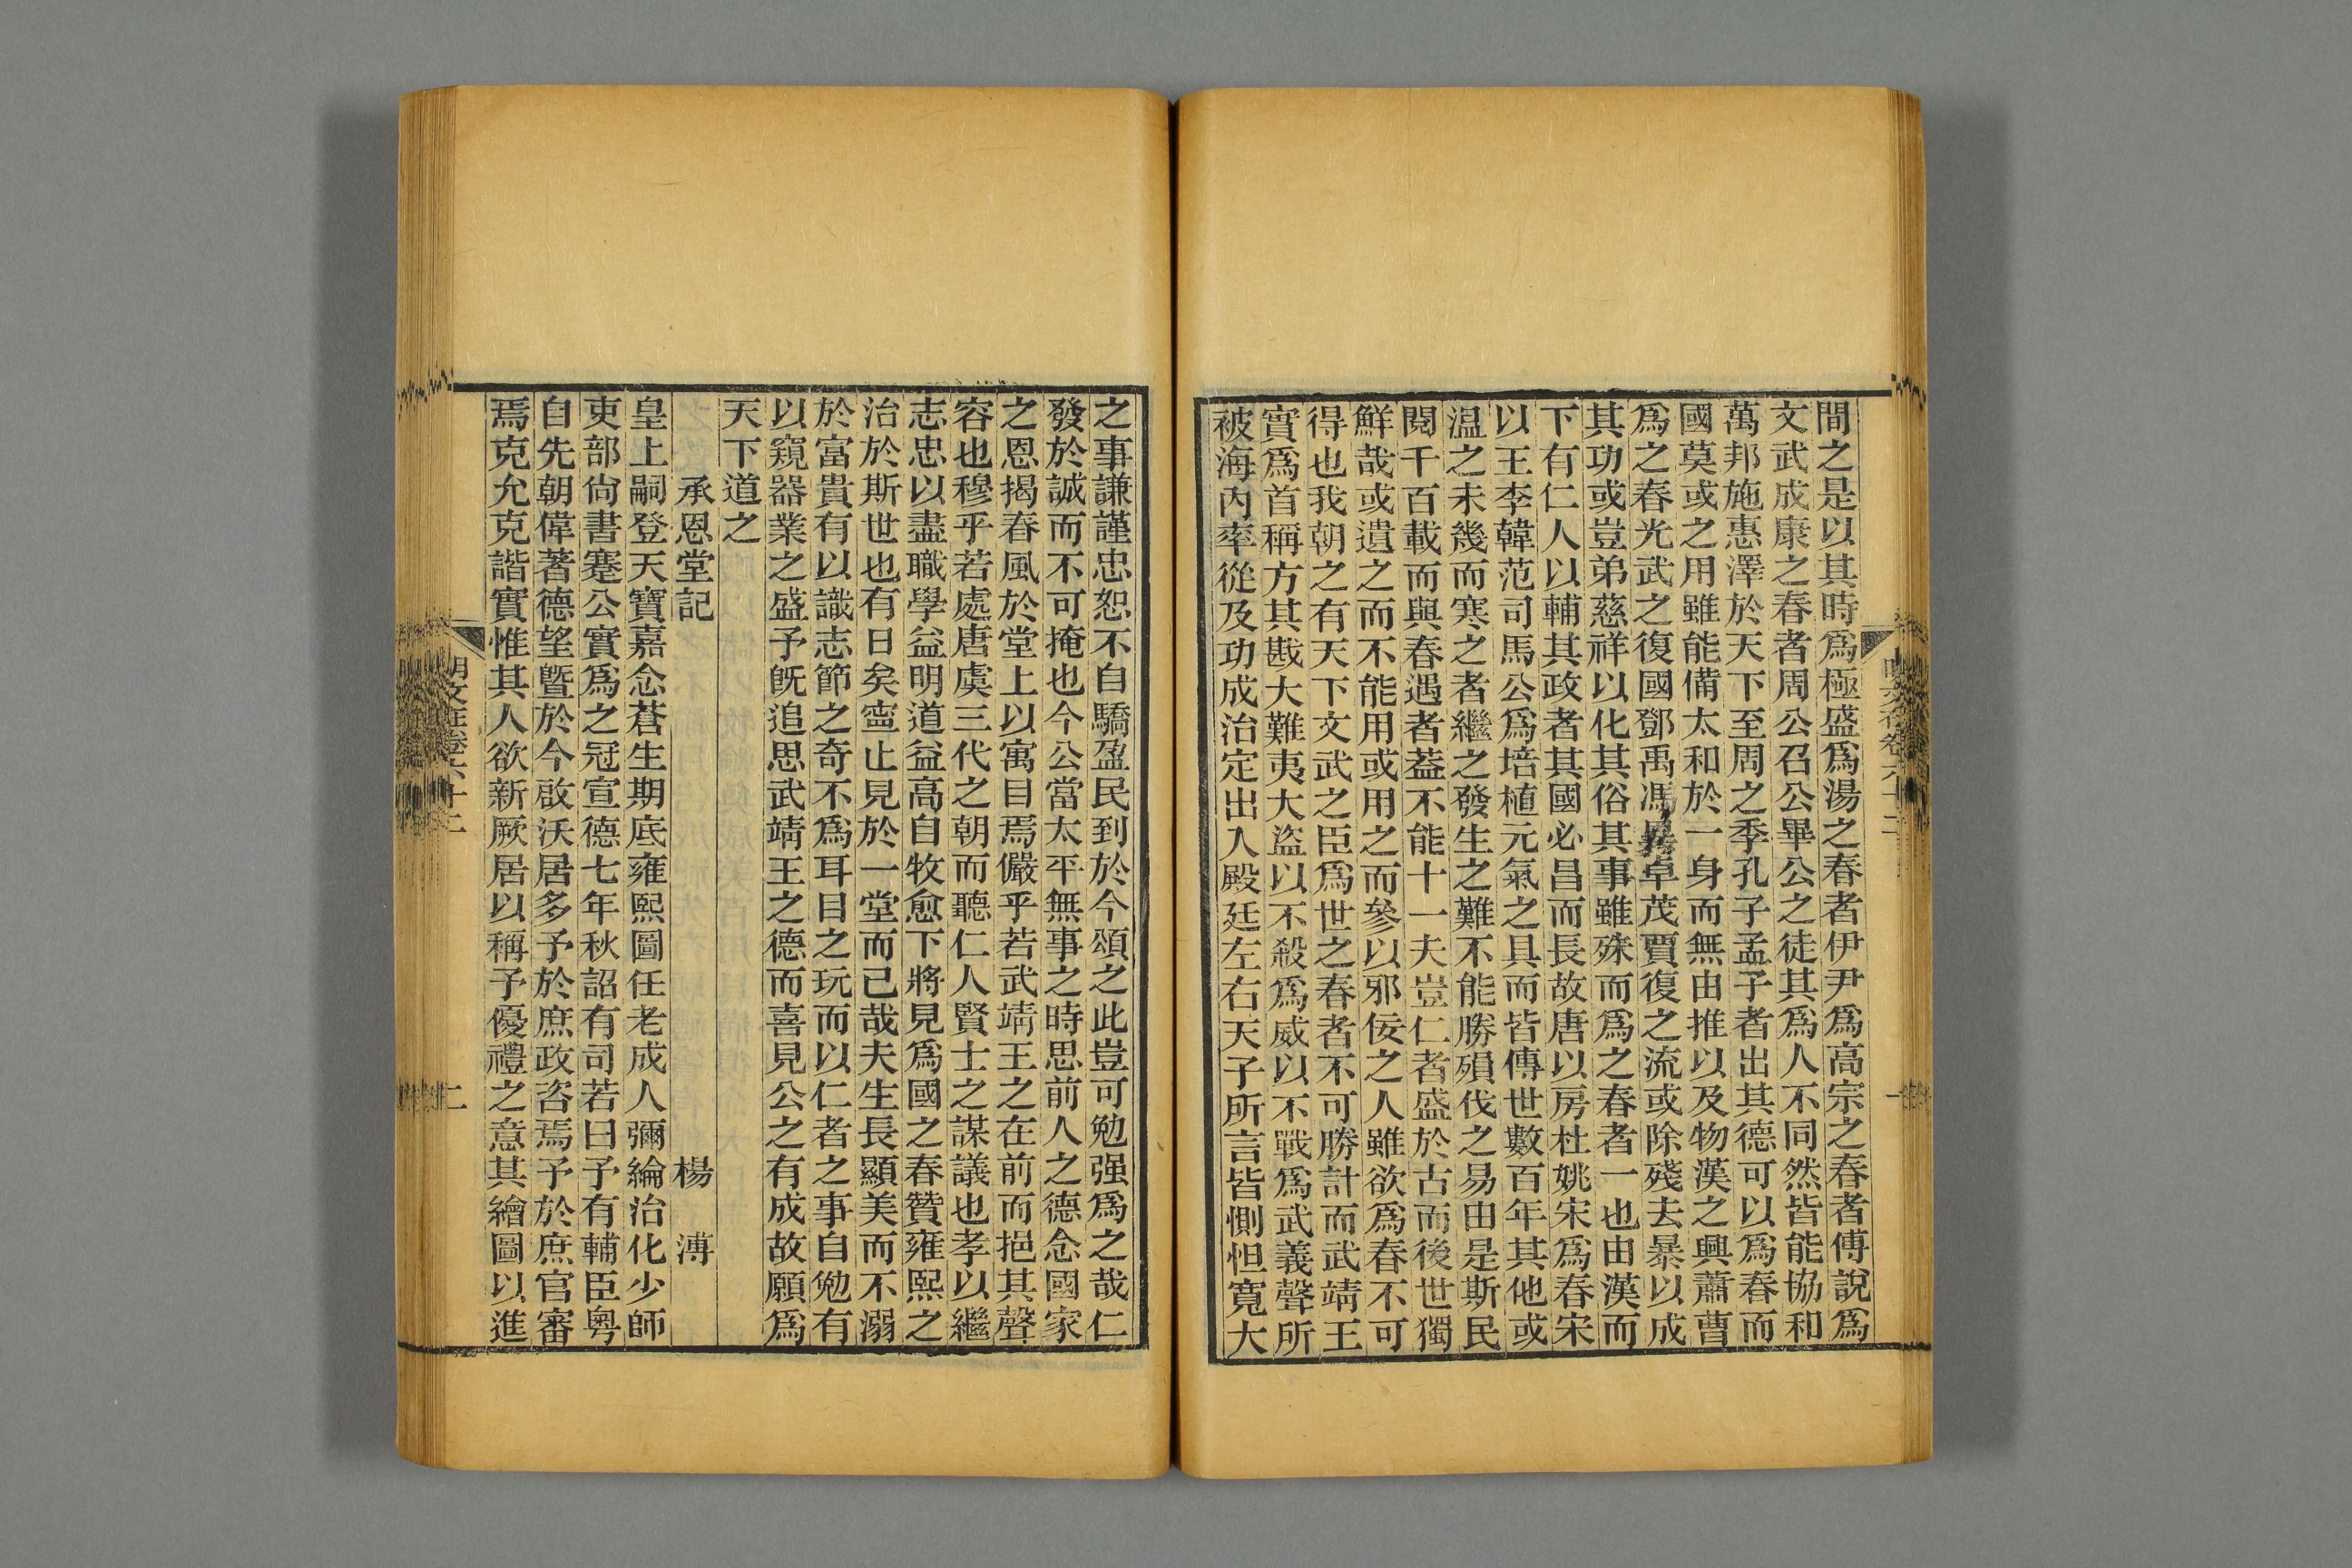 間之是以其時爲極盛爲湯之春者伊尹爲高宗之春者傅說爲
文武成康之春者周公召公畢公之徒其爲人不同然皆能協和
萬邦施惠澤於天下至周之季孔子孟子者出其德可以爲春而
國莫或之用雖能備太和於一身而無由推以及物漢之興蕭曹
爲之春光武之復國鄧禹馮異卓茂賈復之流或除殘去暴以成
其功或豈弟慈祥以化其俗其事雖殊而爲之春者一也由漢而
下有仁人以輔其政者其國必昌而長故唐以房杜姚宋爲春宋
以王李韓范司馬公爲培植元氣之具而皆傳世數百年其他或
溫之未幾而寒之者繼之發生之難不能勝殞伐之易由是斯民
閱千百載而與春遇者葢不能十一夫豈仁者盛於古而後世獨
鮮哉或遺之而不能用或用之而參以邪佞之人雖欲爲春不可
得也我朝之有天下文武之臣爲世之春者不可勝計而武靖王
實爲首稱方其戡大難夷大盜以不殺爲威以不戰爲武義聲所
被海內率從及功成治定出入殿廷左右天子所言皆惻怛寬大
之事謙謹忠恕不自驕盈民到於今頌之此豈可勉强爲之哉仁
發於誠而不可掩也今公當太平無事之時思前人之德念國家
之恩揭春風於堂上以寓目焉儼乎若武靖王之在前而挹其聲
容也穆乎若處唐虞三代之朝而聽仁人賢士之謀議也孝以繼
志忠以盡職學益明道益高自牧愈下將見爲國之春贊雍熙之
治於斯世也有日矣寧止見於一堂而已哉夫生長顯美而不溺
於富貴有以識志節之奇不爲耳目之玩而以仁者之事自勉有
以窺器業之盛予旣追思武靖王之德而喜見公之有成故願爲
天下道之
承恩堂記 楊溥
皇上嗣登天寶嘉念蒼生期底雍熙圖任老成人彌綸治化少師
吏部尙書蹇公實爲之冠宣德七年秋詔有司若曰予有輔臣粵
自先朝偉著德望曁於今啟沃居多予於庶政咨焉予於庶官審
焉克允克諧實惟其人欲新厥居以稱予優禮之意其繪圖以進
明文在卷六十二
二